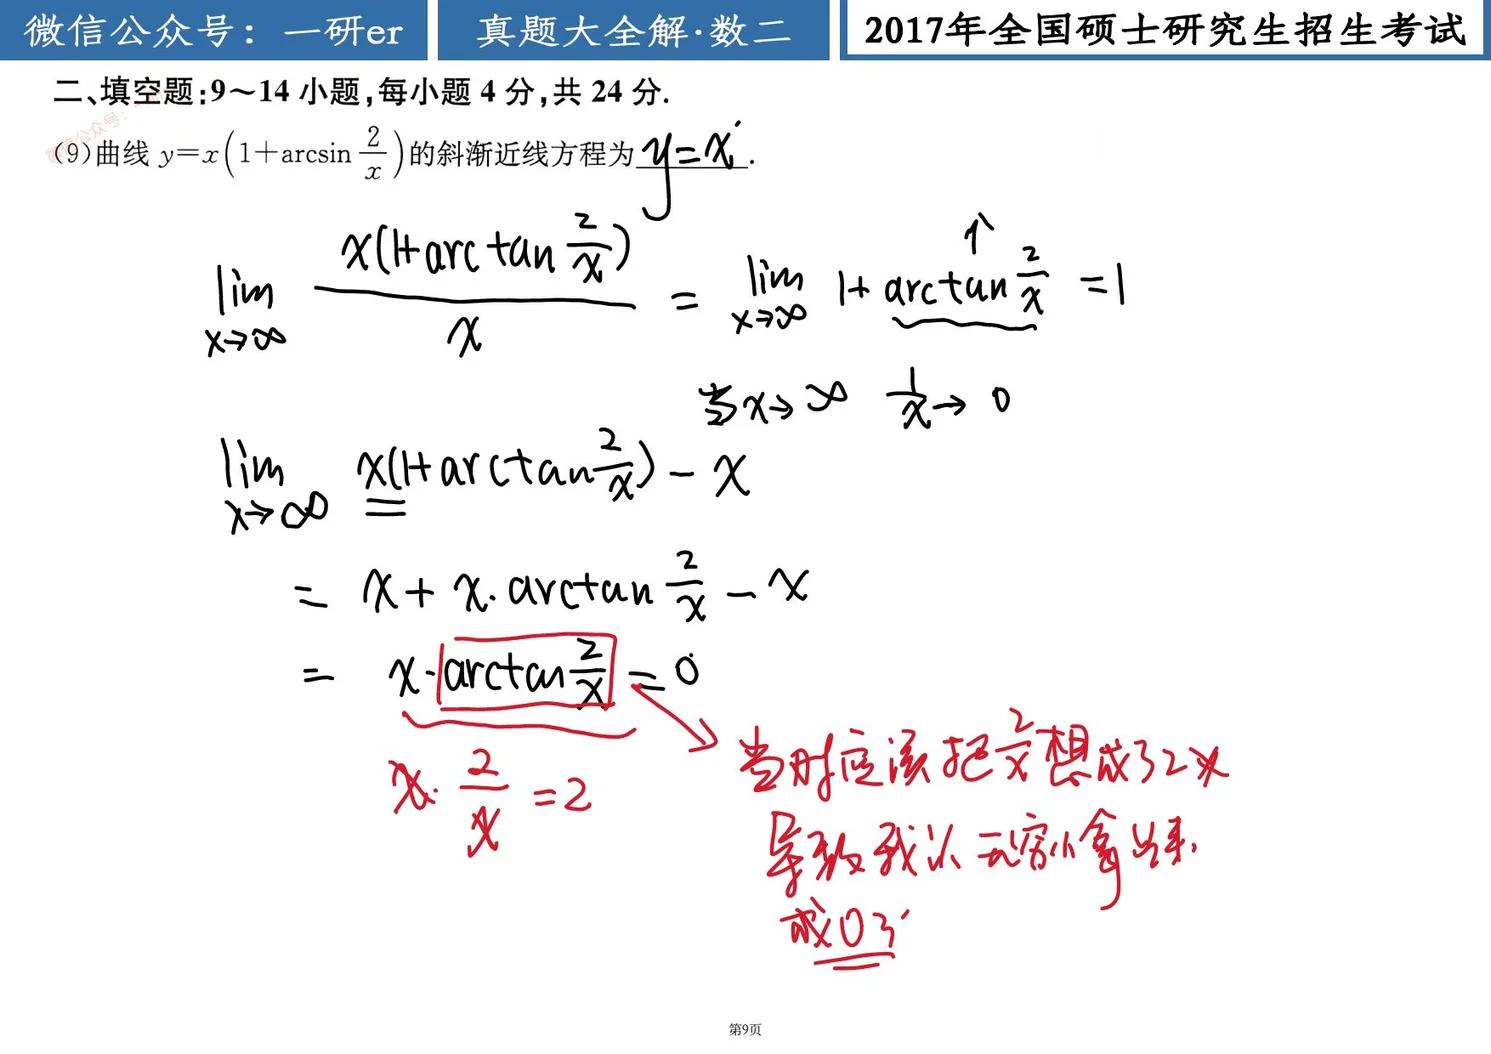 微信公众号：一研er 真题大全解·数二 2017年全国硕士研究生招生考试
二、填空题:9～14 小题,每小题 4 分,共 24 分.
(9)曲线 y=x(1+arcsin 2/x)的斜渐近线方程为 y=x .
lim x→∞ x(1+arctan 2/x) / x = lim x→∞ 1+arctan 2/x =1
当x→∞ 1/x→0
lim x→∞ x(1+arctan 2/x)-x
= x+x·arctan 2/x -x
= x·arctan 2/x =0
x·2/x=2
当时应该把2/x想成了2x
导致我以无穷小拿出来,
成0了
第9页